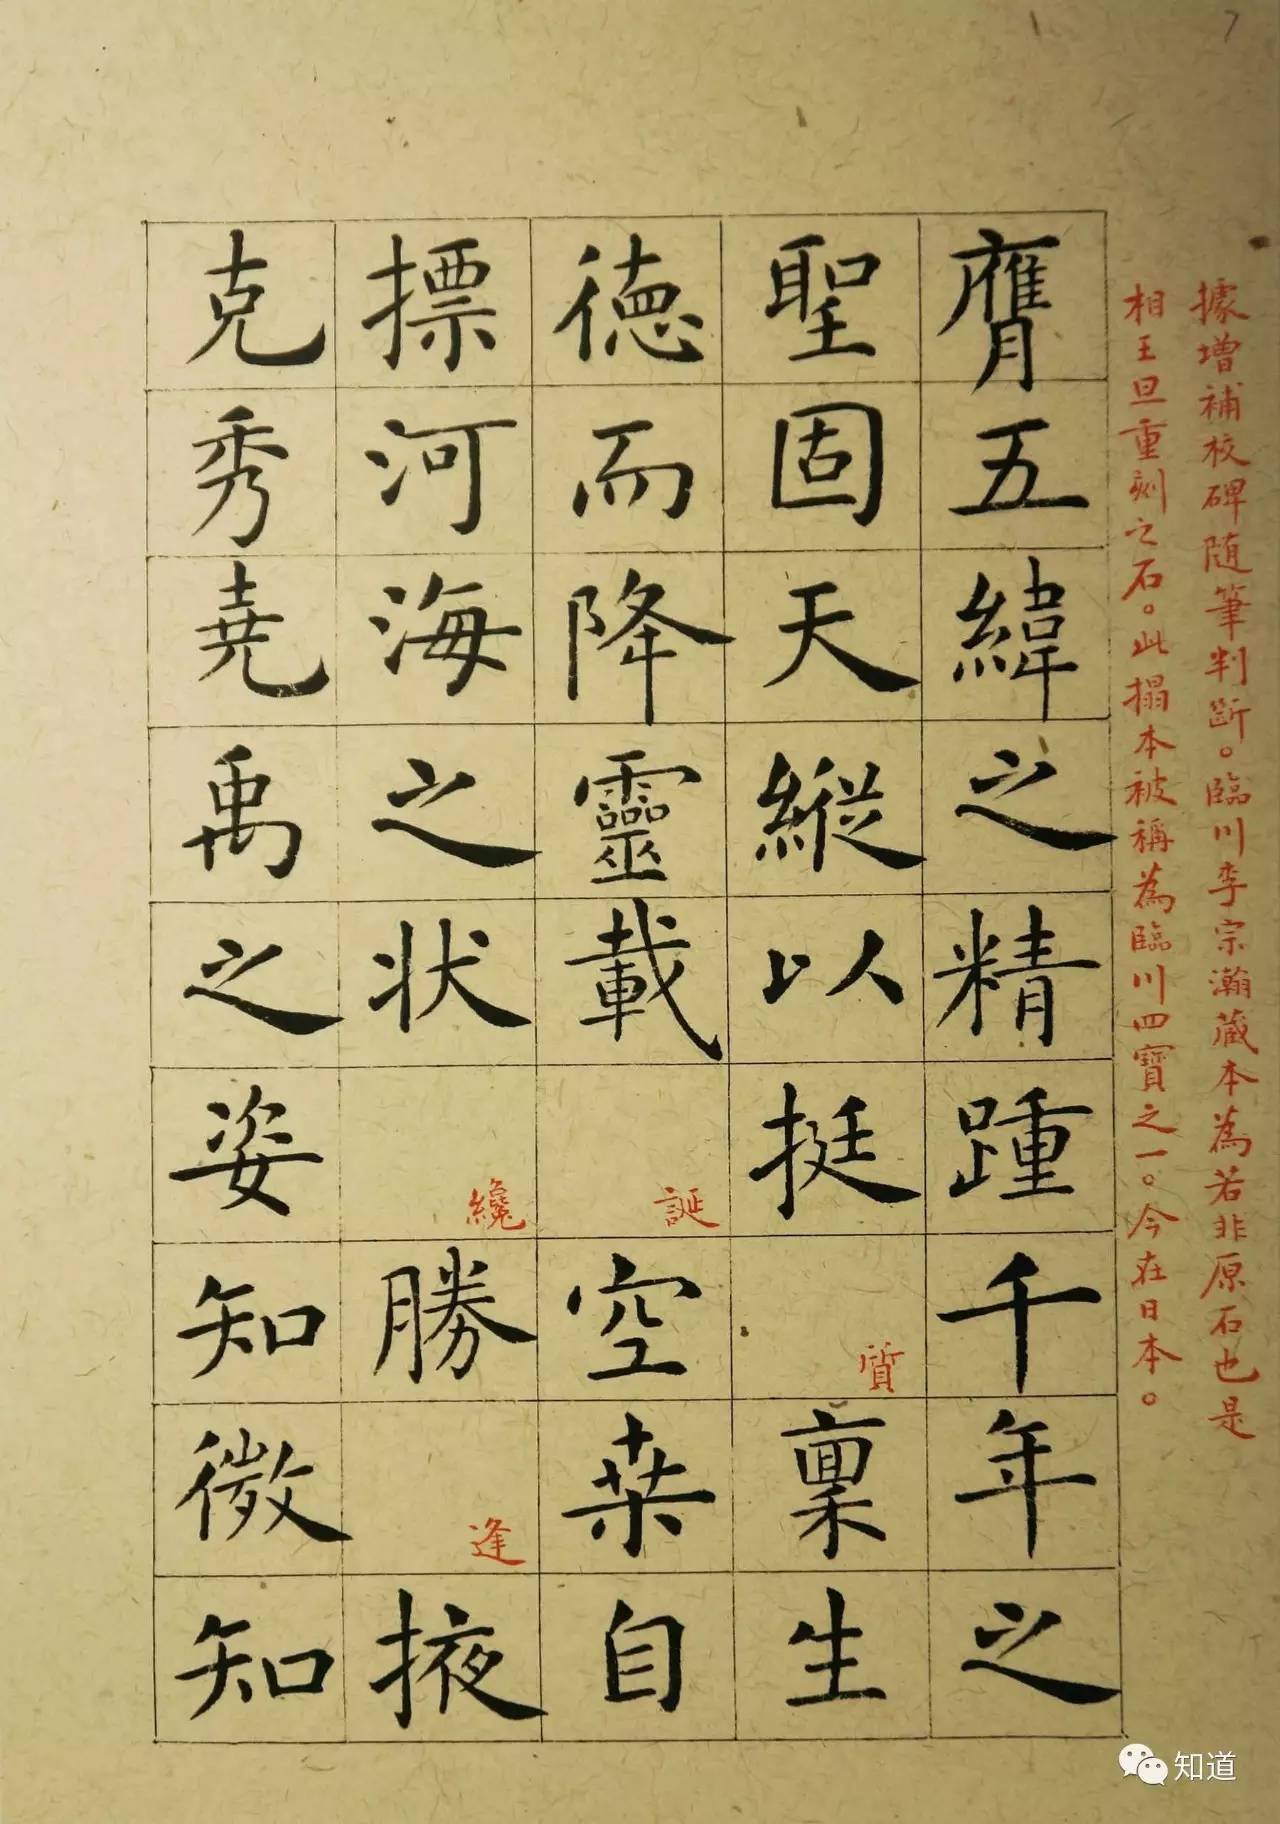 7
據增補校碑随筆判斷。臨川李宗瀚蔵本為若非原石也是
相王旦重刻之石。此搨本被稱為臨川四寶之一。今在日本。
膺五緯之精踵千年之
聖固天縱以挺質禀生
德而降靈載誕空桒自
摽河海之状纔勝逢掖
克秀堯禹之姿知微知
知道